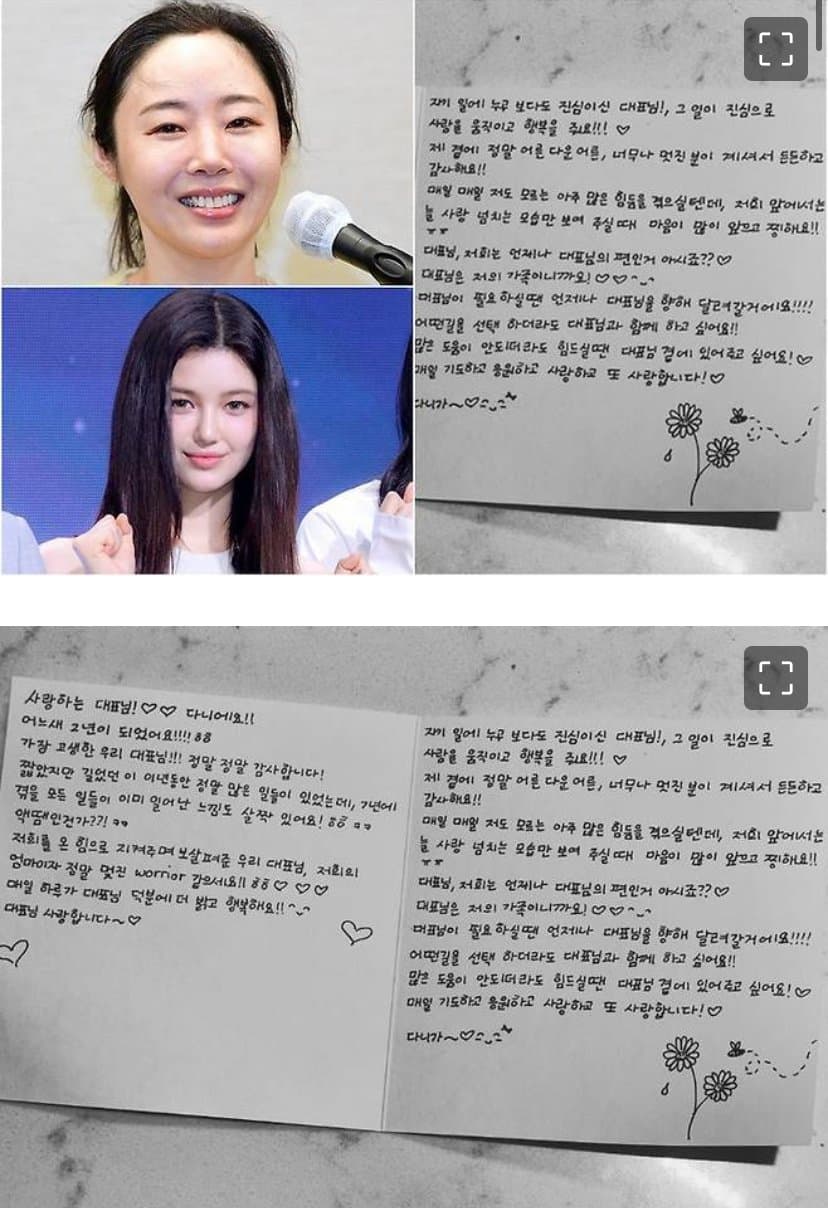 자기 일에 누구 보다도 진심이신 대표님!, 그 일이 진심으로
사람을 움직이고 행복을 줘요!!! ♡
제 곁에 정말 어른 다운 어른, 너무나 멋진 분이 계셔서 든든하고
감사해요!!
매일 매일 저도 모르는 아주 많은 힘듦을 겪으실텐데, 저희 앞에서는
늘 사랑 넘치는 모습만 보여 주실때 마음이 많이 아프고 찡해요!!
ㅠㅠ
대표님, 저희는 언제나 대표님의 편인거 아시죠??♡
대표님은 저의 가족이니까요! ♡♡^_^
대표님이 필요하실땐 언제나 대표님을 향해 달려갈거에요!!!!
어떤길을 선택 하더라도 대표님과 함께 하고 싶어요!!
많은 도움이 안되더라도 힘드실땐 대표님 곁에 있어주고 싶어요!♡
매일 기도하고 응원하고 사랑하고 또 사랑합니다!♡
다니가~♡
사랑하는 대표님!♡♡ 다니에요!!
어느새 2년이 되었어요!!!! ㅎㅎ
가장 고생한 우리 대표님!!! 정말 정말 감사합니다!
짧았지만 길었던 이 이년동안 정말 많은 일들이 있었는데, 7년에
겪을 모든 일들이 이미 일어난 느낌도 살짝 있어요! ㅎㅎ ㅋㅋ
액땜인건가??! ㅋㅋ
저희를 온 힘으로 지켜주며 보살펴준 우리 대표님, 저희의
엄마이자 정말 멋진 worrior 같으세요!! ㅎㅎ♡ ♡♡
매일 하루가 대표님 덕분에 더 밝고 행복해요!! ^_^
대표님 사랑합니다~♡
자기 일에 누구 보다도 진심이신 대표님!, 그 일이 진심으로
사람을 움직이고 행복을 줘요!!! ♡
제 곁에 정말 어른 다운 어른, 너무나 멋진 분이 계셔서 든든하고
감사해요!!
매일 매일 저도 모르는 아주 많은 힘듦을 겪으실텐데, 저희 앞에서는
늘 사랑 넘치는 모습만 보여 주실때 마음이 많이 아프고 찡해요!!
ㅠㅠ
대표님, 저희는 언제나 대표님의 편인거 아시죠??♡
대표님은 저의 가족이니까요! ♡♡^_^
대표님이 필요하실땐 언제나 대표님을 향해 달려갈거에요!!!!
어떤길을 선택 하더라도 대표님과 함께 하고 싶어요!!
많은 도움이 안되더라도 힘드실땐 대표님 곁에 있어주고 싶어요!♡
매일 기도하고 응원하고 사랑하고 또 사랑합니다!♡
다니가~♡